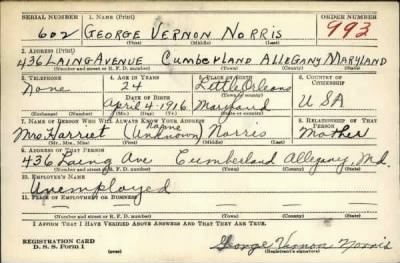 SERIAL NUMBER 1. NAME (Print) ORDER NUMBER
602 GEORGE VERNON NORRIS 993
(First) (Middle) (Last)
2. ADDRESS (Print)
436 LAING AVENUE CUMBERLAND ALLEGANY MARYLAND
(Number and street or R. F. D. number) (Town) (County) (State)
3. TELEPHONE 4. AGE IN YEARS 5. PLACE OF BIRTH 6. COUNTRY OF CITIZENSHIP
None 24 Little Orleans
DATE OF BIRTH (Town or county)
April 4-1916 Maryland USA
(Exchange) (No.) (Mo.) (Day) (Yr.) (State or country)
7. NAME OF PERSON WHO WILL ALWAYS KNOW YOUR ADDRESS 8. RELATIONSHIP OF THAT PERSON
Mrs. Harriet (Unknown) Norris Mother
(Mr., Mrs., Miss) (First) (Middle) (Last)
9. ADDRESS OF THAT PERSON
436 Laing Ave Cumberland Allegany, Md.
(Number and street or R. F. D. number) (Town) (County) (State)
10. EMPLOYER'S NAME
Unemployed
11. PLACE OF EMPLOYMENT OR BUSINESS
(Number and street or R. F. D. number) (Town) (County) (State)
I AFFIRM THAT I HAVE VERIFIED ABOVE ANSWERS AND THAT THEY ARE TRUE.
REGISTRATION CARD
D. S. S. Form 1 (over) George Vernon Norris
(Registrant's signature)